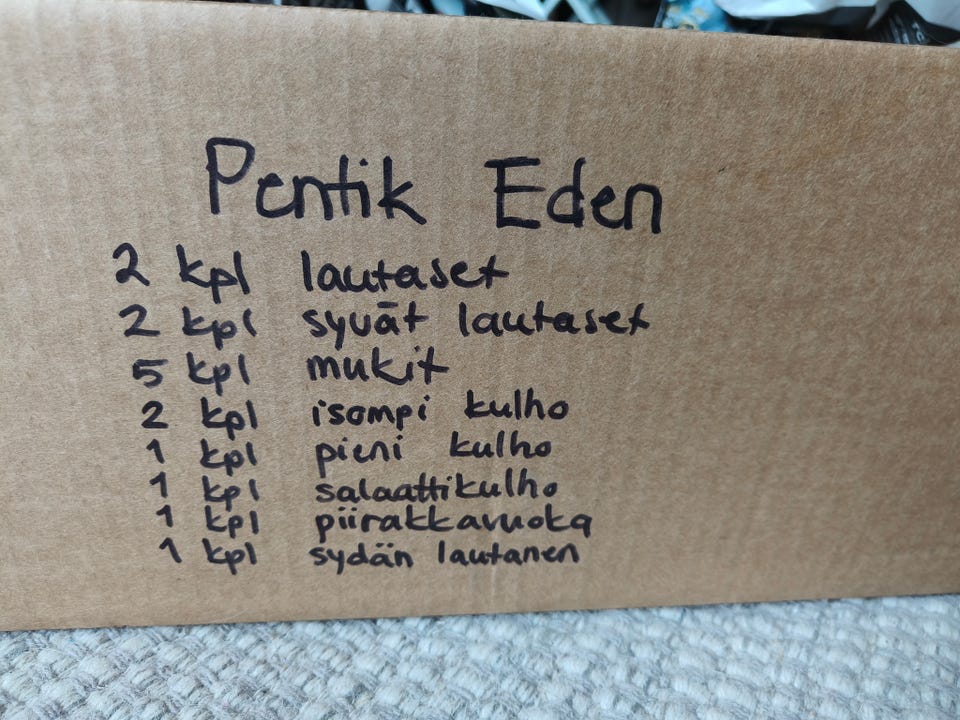 Pentik Eden
2 kpl lautaset
2 kpl syvät lautaset
5 kpl mukit
2 kpl isompi kulho
1 kpl pieni kulho
1 kpl salaattikulho
1 kpl piirakkavuoka
1 kpl sydän lautanen